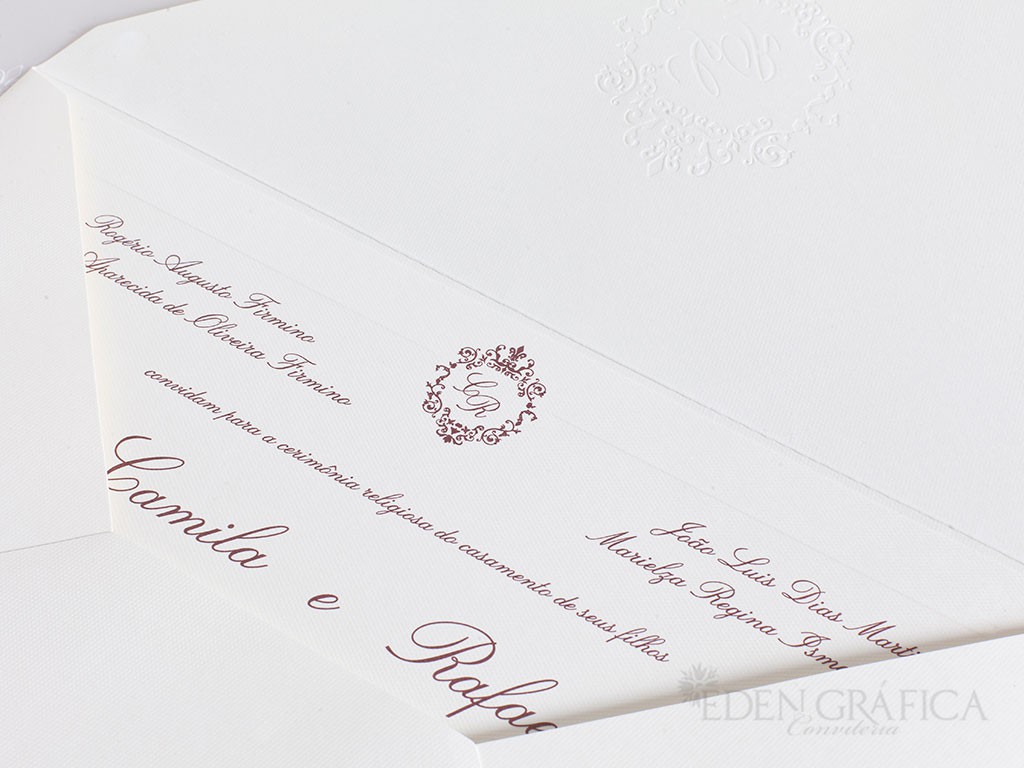 CR
Rogério Augusto Firmino
Aparecida de Oliveira Firmino
João Luis Dias
Marielza Regina
convidam para a cerimônia religiosa do casamento de seus filhos
Camila e
EDEN GRÁFICA
Conviteria